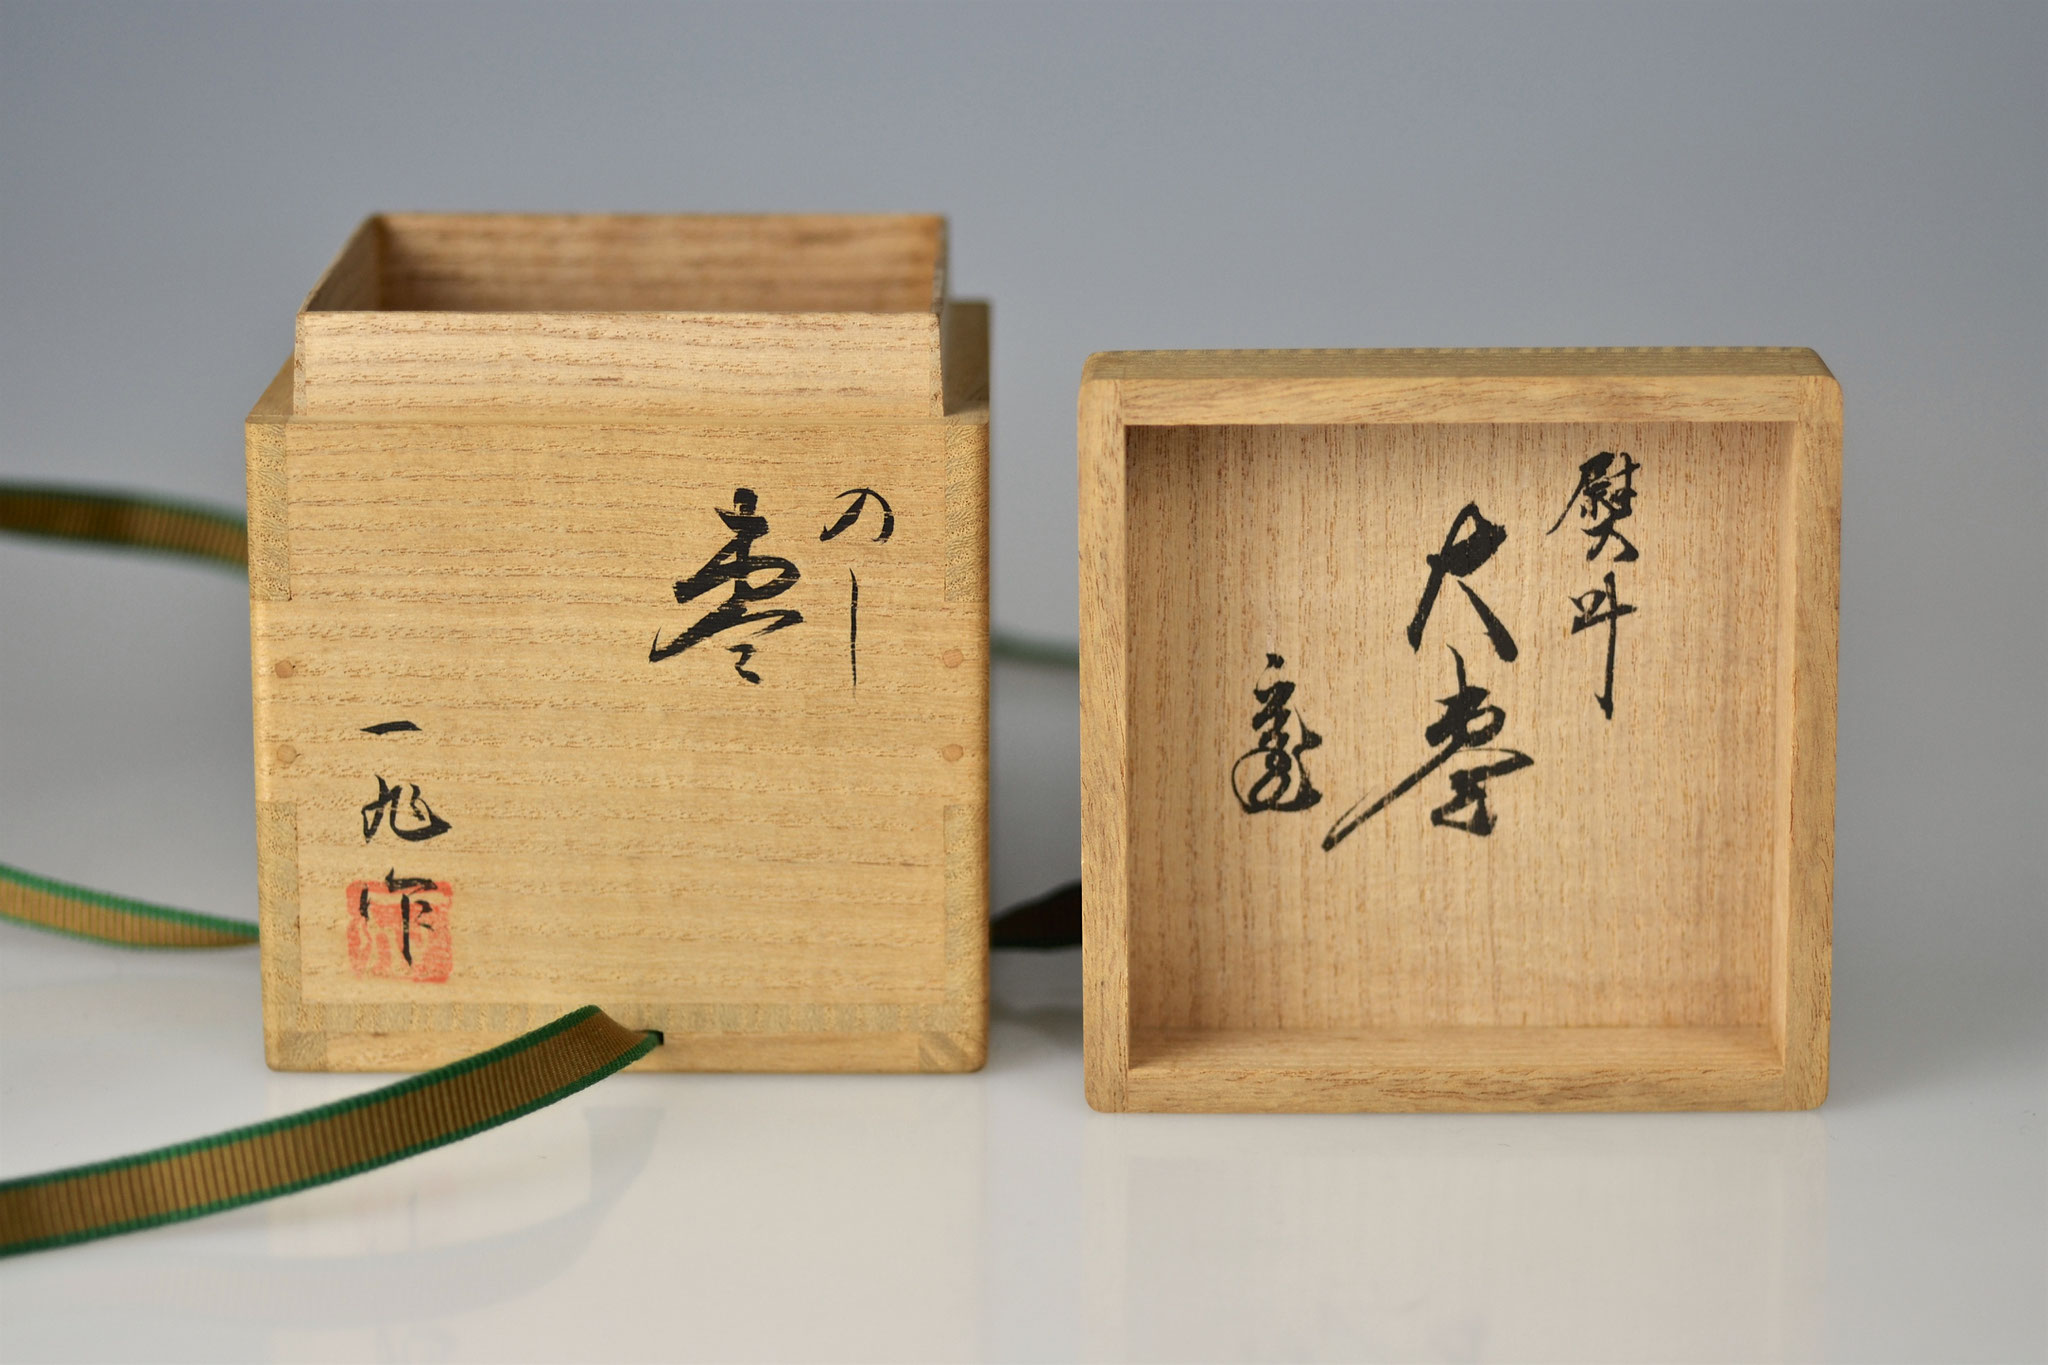 のし
棗
一旭作
熨斗
大棗